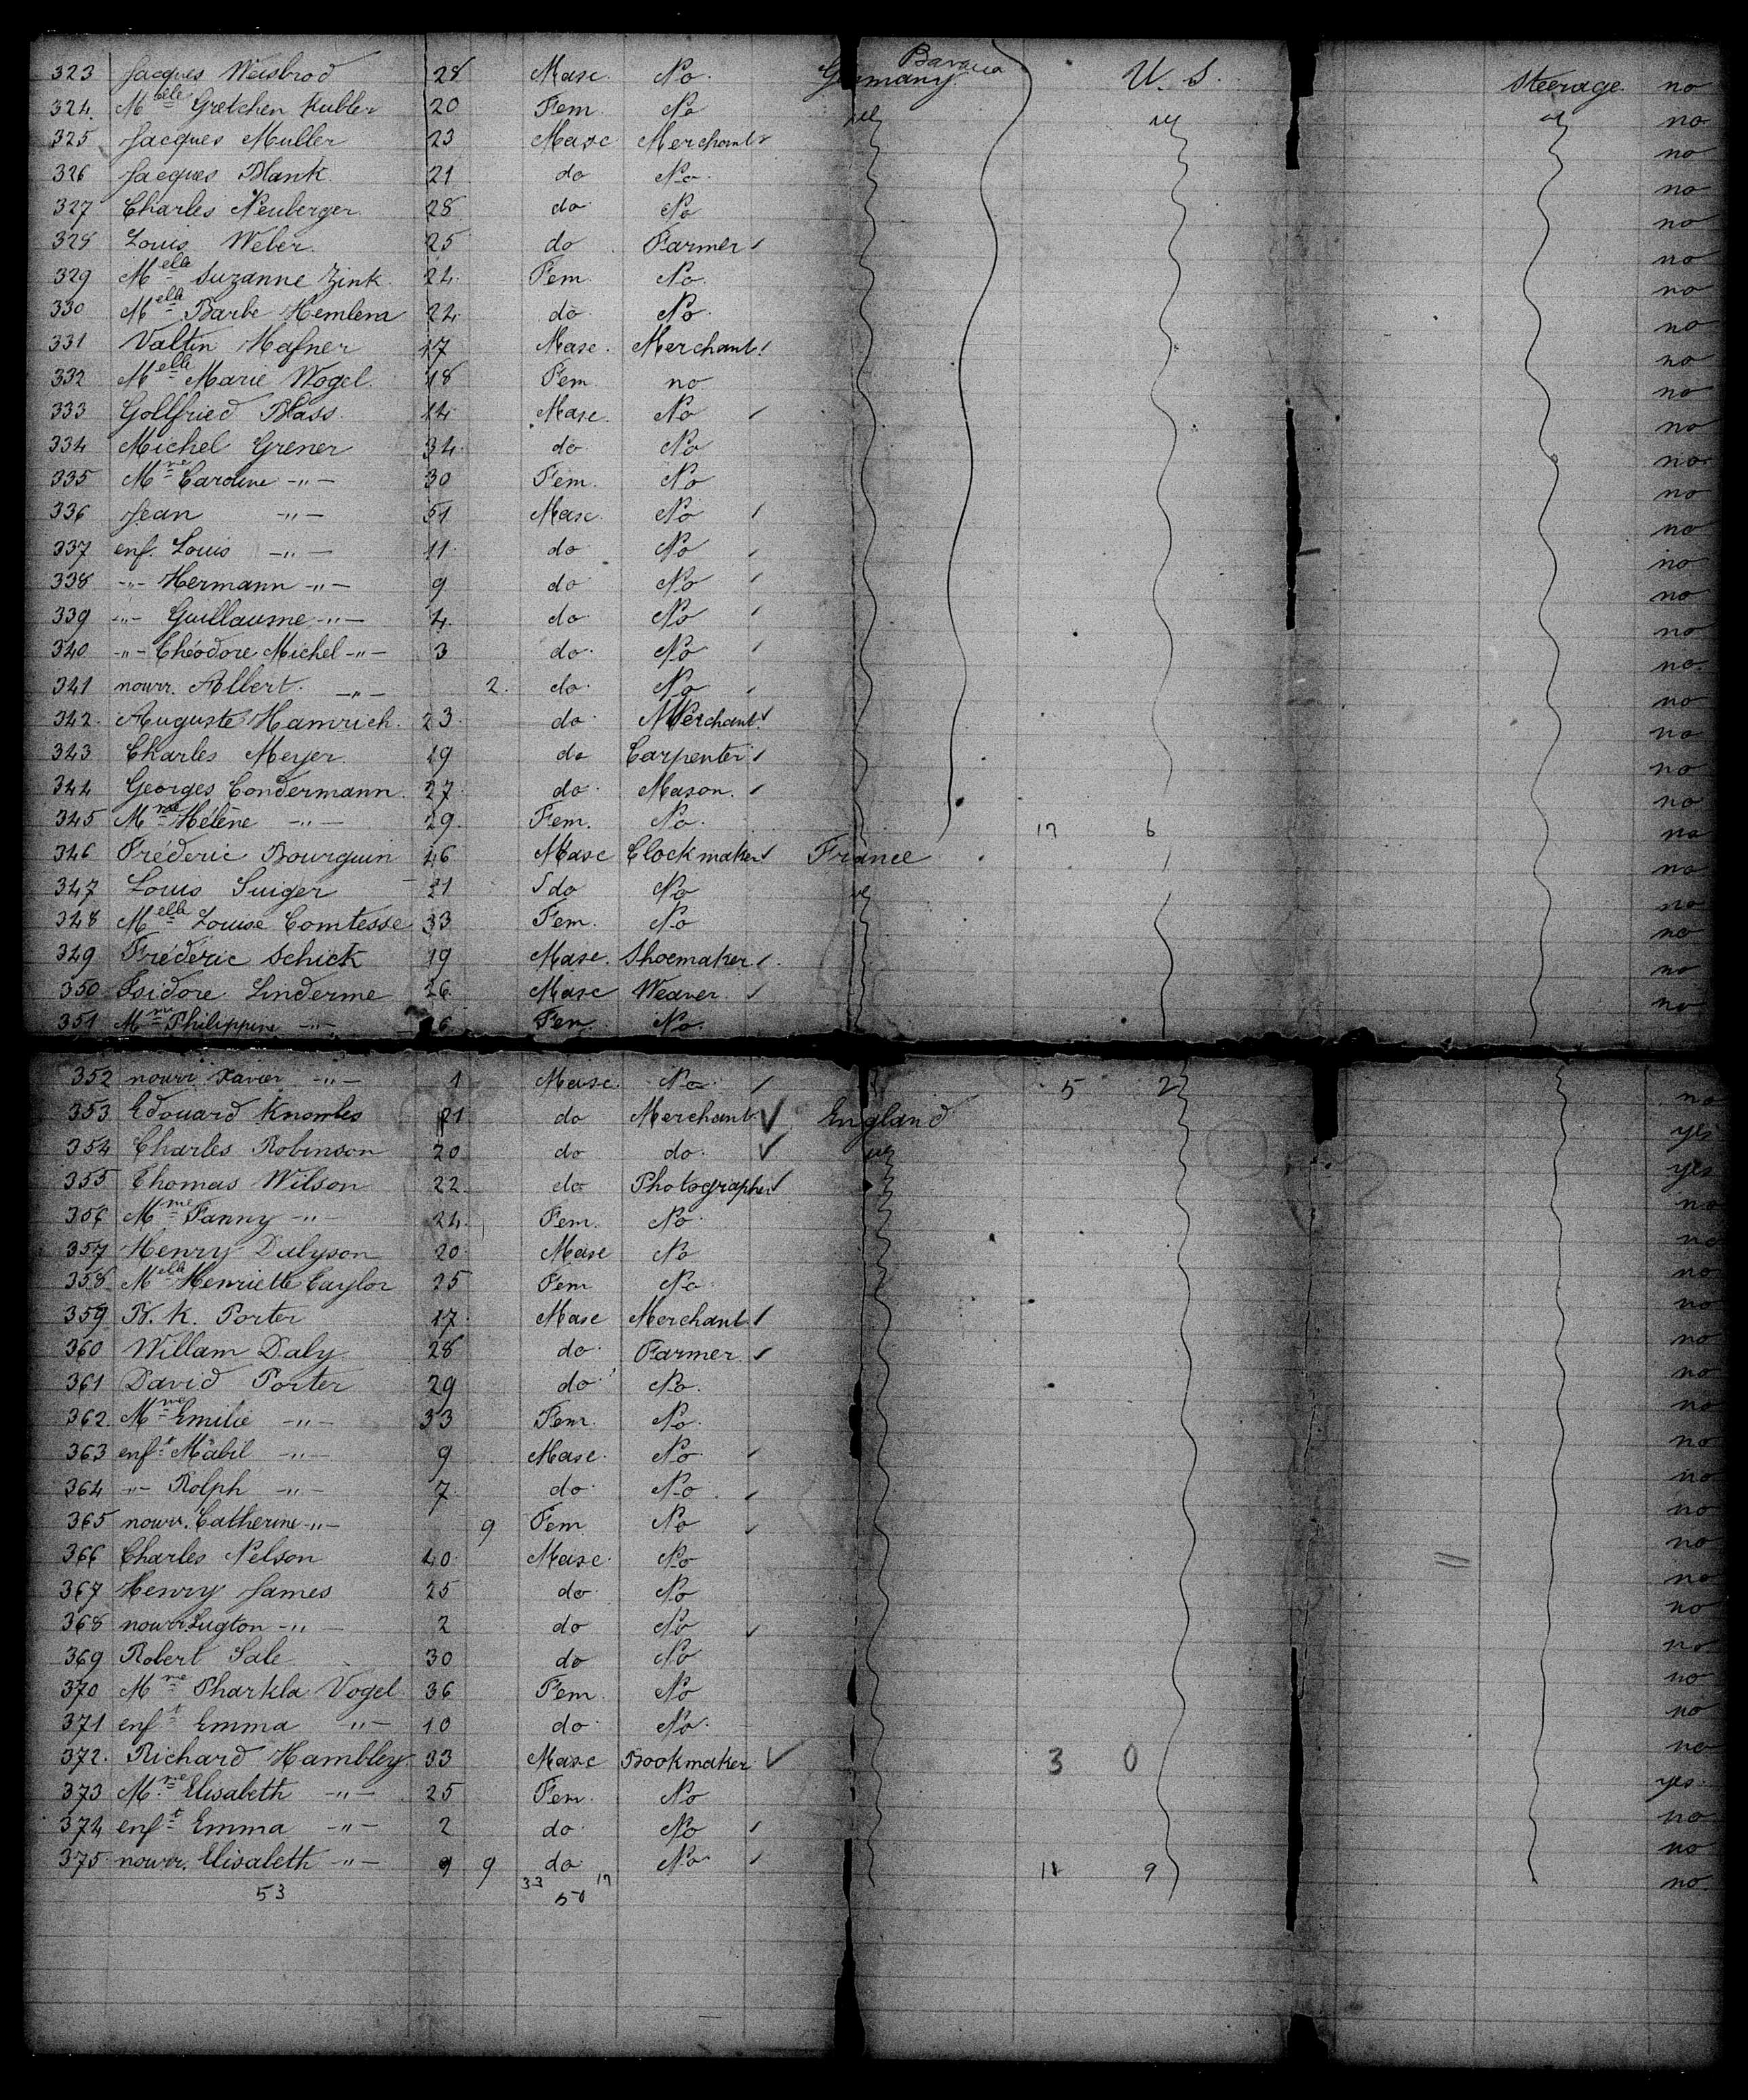 323 Jacques Weisbrod 28 Masc. No. Germany Bavaria U. S. Steerage. no
324. Melle Gretchen Kubler 20 Fem. No no
325 Jacques Muller 23 Masc Merchant no
326 Jacques Blank 21 do No. no
327 Charles Neuberger 28 do No no
328 Louis Weber 25 do Farmer no
329 Melle Suzanne Zink 24 Fem. No. no
330 Melle Barbe Hemlem 22 do No. no
331 Valtin Hafner 17 Masc. Merchant no
332 Melle Marie Wogel. 18 Fem. no no
333 Gottfried Blass. 14 Masc. No no
334 Michel Grener 34 do No no
335 Mme Caroline -"- 30 Fem. No no
336 Jean -"- 51 Masc. No no
337 enf. Louis -"- 11 do No no
338 -"- Hermann -"- 9 do No no
339 -"- Guillaume -"- 4 do No no
340 -"- Théodore Michel -"- 3 do No no
341 nourr. Albert. -"- 2. do No no
342. Auguste Hamrich. 23 do Merchant no
343 Charles Meyer 19 do Carpenter no
344 Georges Condermann 27 do Mason. no
345 Mme Hélène -"- 29 Fem. No. 17 6 no
346 Fréderic Bourquin 46 Masc Clockmaker France no
347 Louis Suiger 21 do No no
348 Melle Louise Comtesse 33 Fem. No no
349 Fréderic Schick 19 Masc. Shoemaker no
350 Isidore Linderme 26 Masc Weaver. no
351 Mme Philippine -"- 6 Fem. No.
352 nourr Xavier -"- 1 Masc. No. 5 2 no
353 Edouard Knowles 21 do Merchant England yes
354 Charles Robinson 20 do do. yes
355 Thomas Wilson 22 do Photographer no
356 Mme Fanny -"- 24 Fem. No. no
357 Henry Dalyson 20 Masc No no
358 Melle Henriette Taylor 25 Fem No no
359 W. K. Porter 17 Masc Merchant no
360 Willam Daly 28 do Farmer no
361 David Porter 29 do No. no
362. Mme Emilie -"- 33 Fem. No. no
363 enft Mabil -"- 9 Masc. No no
364 -"- Rolph -"- 7 do No no
365 nourr. Catherine -"- 9 Fem No no
366 Charles Nelson 40 Masc. No no
367 Henry James 25 do No no
368 nourr Lugton -"- 2 do No no
369 Robert Sale 30 do No no
370 Mme Tharkla Vogel 36 Fem. No no
371 enft Emma -"- 10 do No. no
372. Richard Hambley 33 Masc Bookmaker 3 0 yes
373 Mme Elisabeth -"- 25 Fem. No no
374 enft Emma -"- 2 do No no
375 nourr. Elisabeth -"- 9 9 do No 11 9 no
53 33 17
50